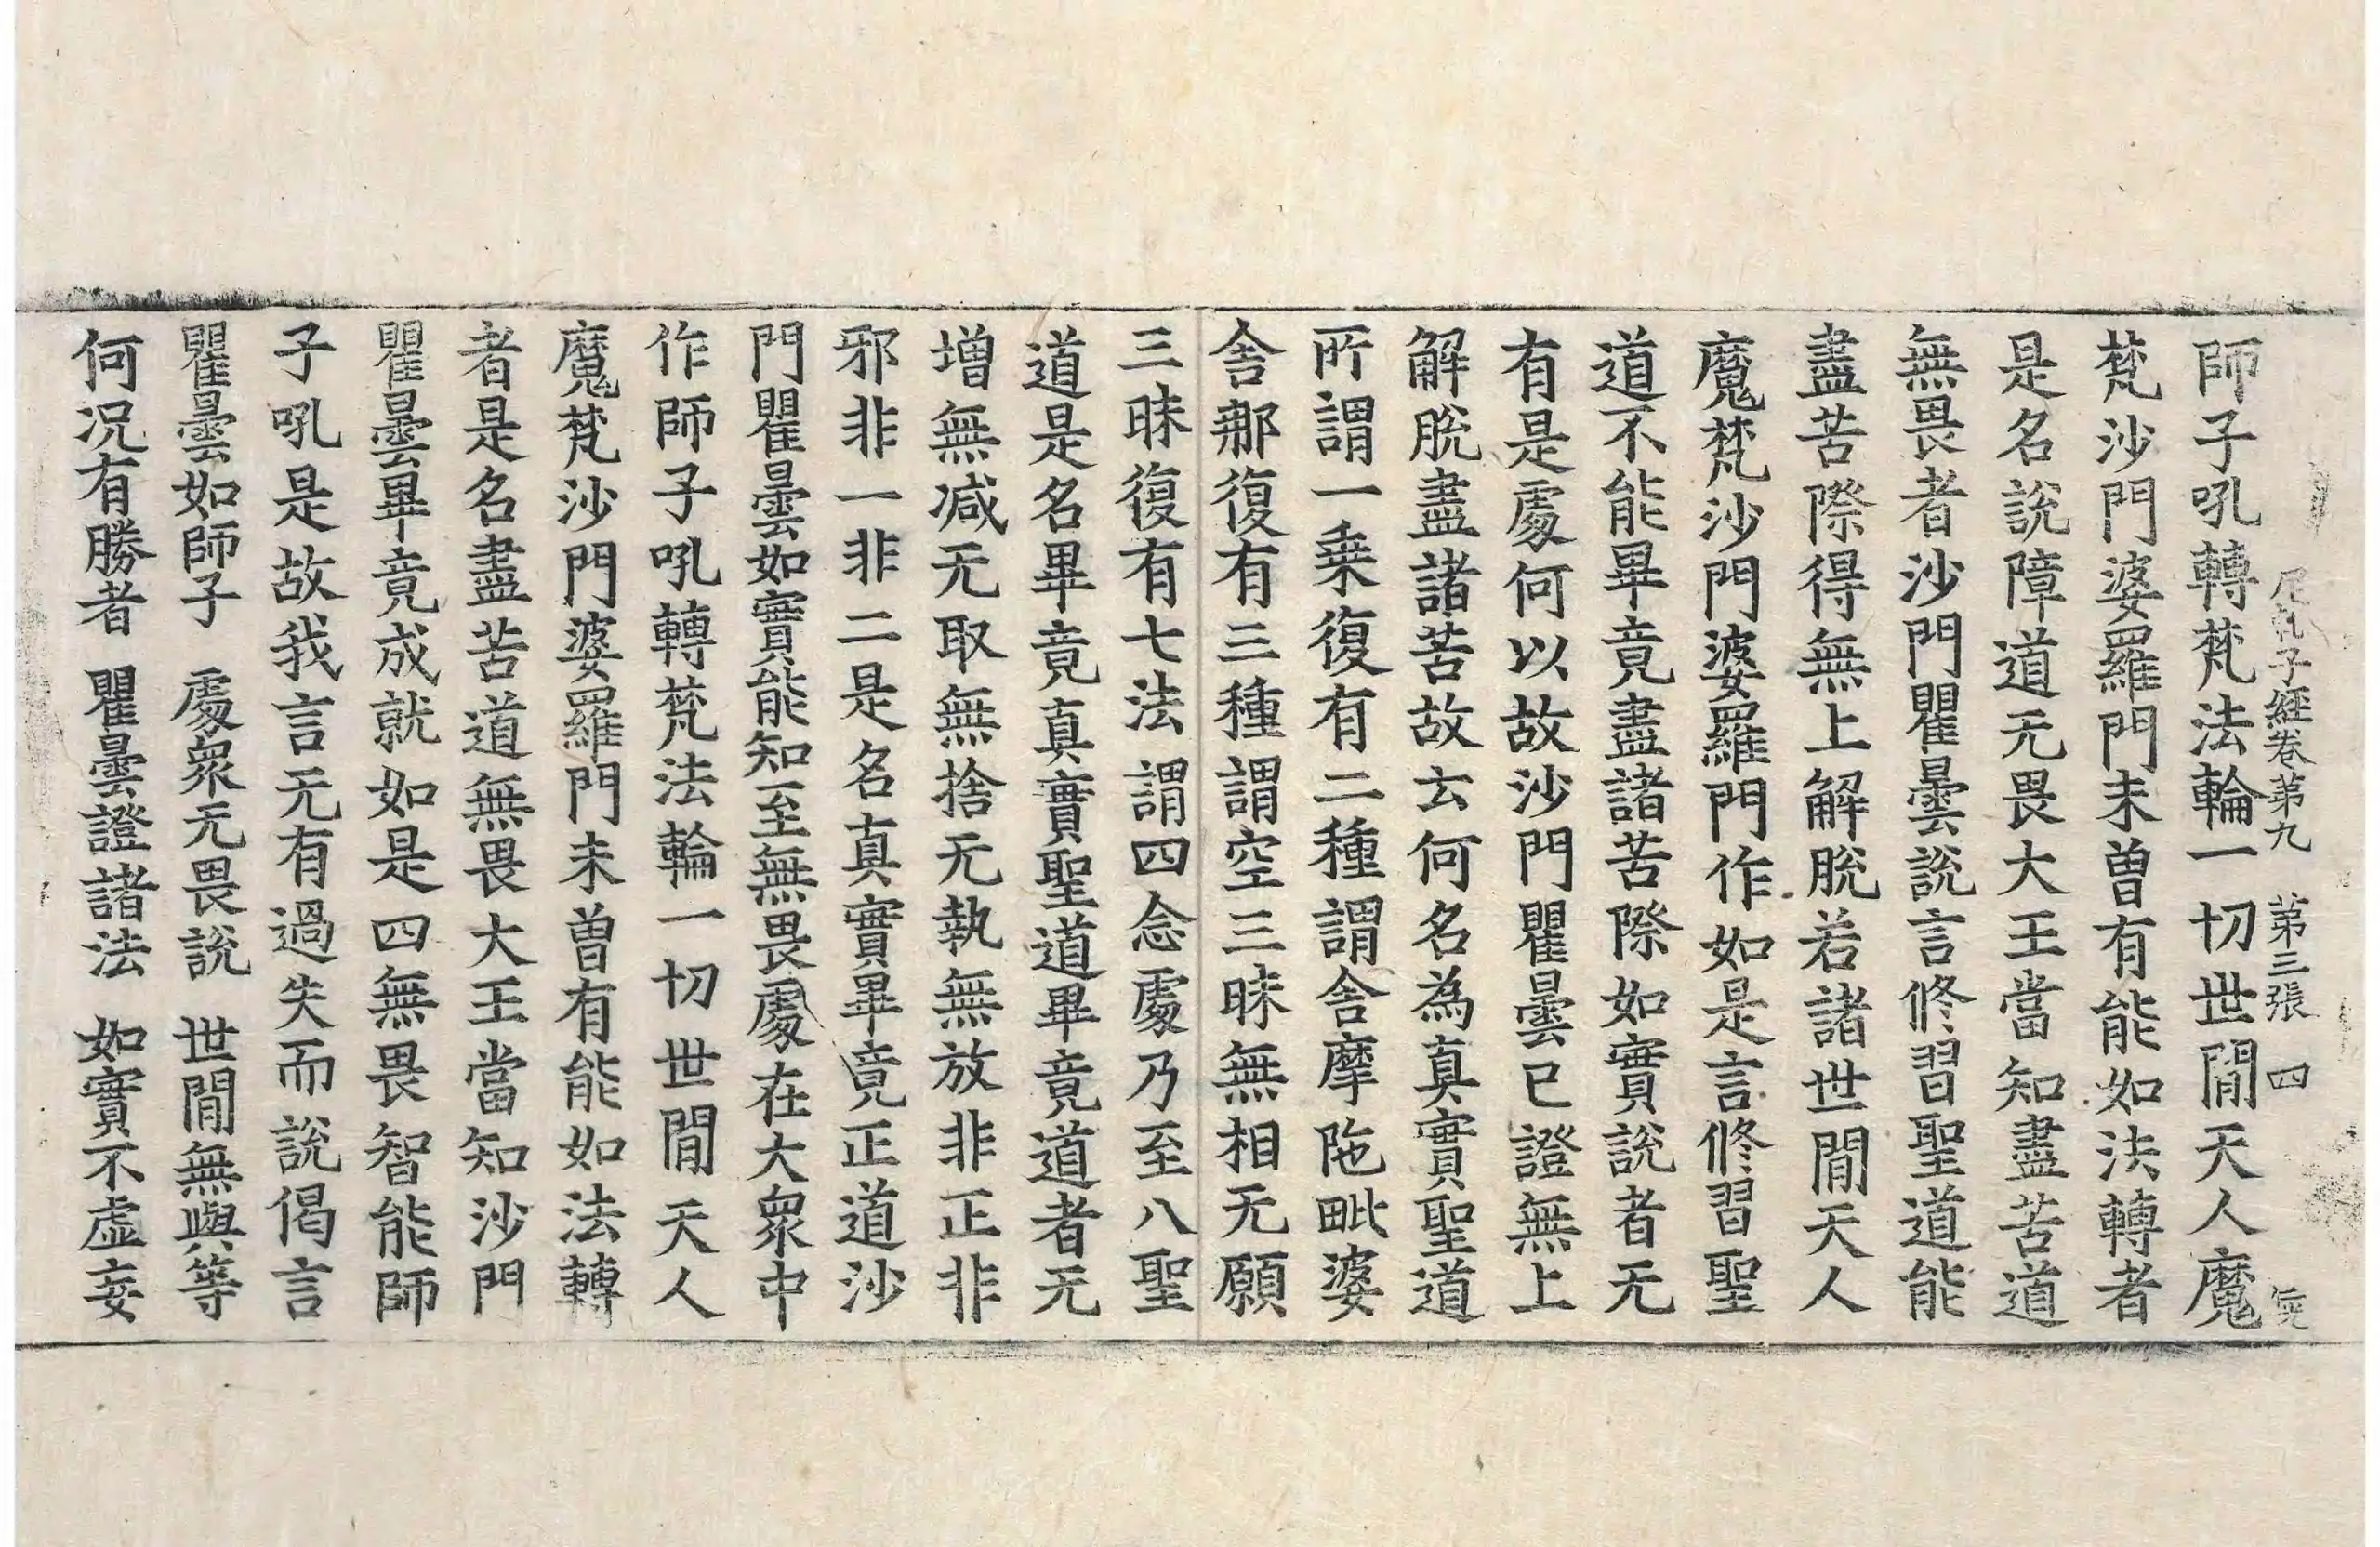 尼乹子經卷第九 第三張 四
師子吼轉梵法輪一切世閒天人魔
梵沙門婆羅門未曾有能如法轉者
是名說障道无畏大王當知盡苦道
無畏者沙門瞿曇說言修習聖道能
盡苦際得無上解脫若諸世閒天人
魔梵沙門婆羅門作如是言修習聖
道不能畢竟盡諸苦際如實說者无
有是處何以故沙門瞿曇已證無上
解脫盡諸苦故云何名為真實聖道
所謂一乗復有二種謂舍摩陁毗婆
舍那復有三種謂空三昧無相无願
三昧復有七法謂四念處乃至八聖
道是名畢竟真實聖道畢竟道者无
增無减无取無捨无執無放非正非
邪非一非二是名真實畢竟正道沙
門瞿曇如實能知至無畏處在大衆中
作師子吼轉梵法輪一切世閒天人
魔梵沙門婆羅門未曾有能如法轉
者是名盡苦道無畏大王當知沙門
瞿曇畢竟成就如是四無畏智能師
子吼是故我言无有過失而說偈言
瞿曇如師子 處衆无畏說 世閒無與等
何况有勝者 瞿曇證諸法 如實不虛妄